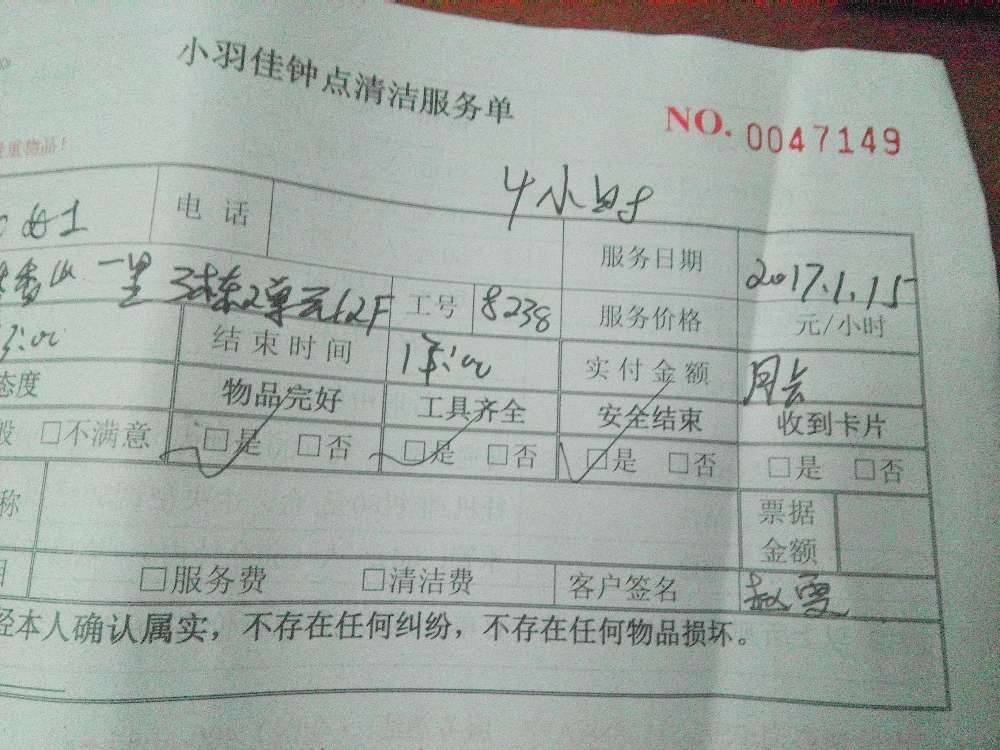 小羽佳钟点清洁服务单
NO. 0047149
重物品!
4小时
电 话
服务日期 2017.1.15
香山一里3栋2单元12F 工号 8238 服务价格 元/小时
结束时间 实付金额 月去
态度 物品完好 工具齐全 安全结束 收到卡片
□不满意 □是 □否 □是 □否 □是 □否 □是 □否
称 票据
金额
□服务费 □清洁费 客户签名 赵雯
经本人确认属实，不存在任何纠纷，不存在任何物品损坏。